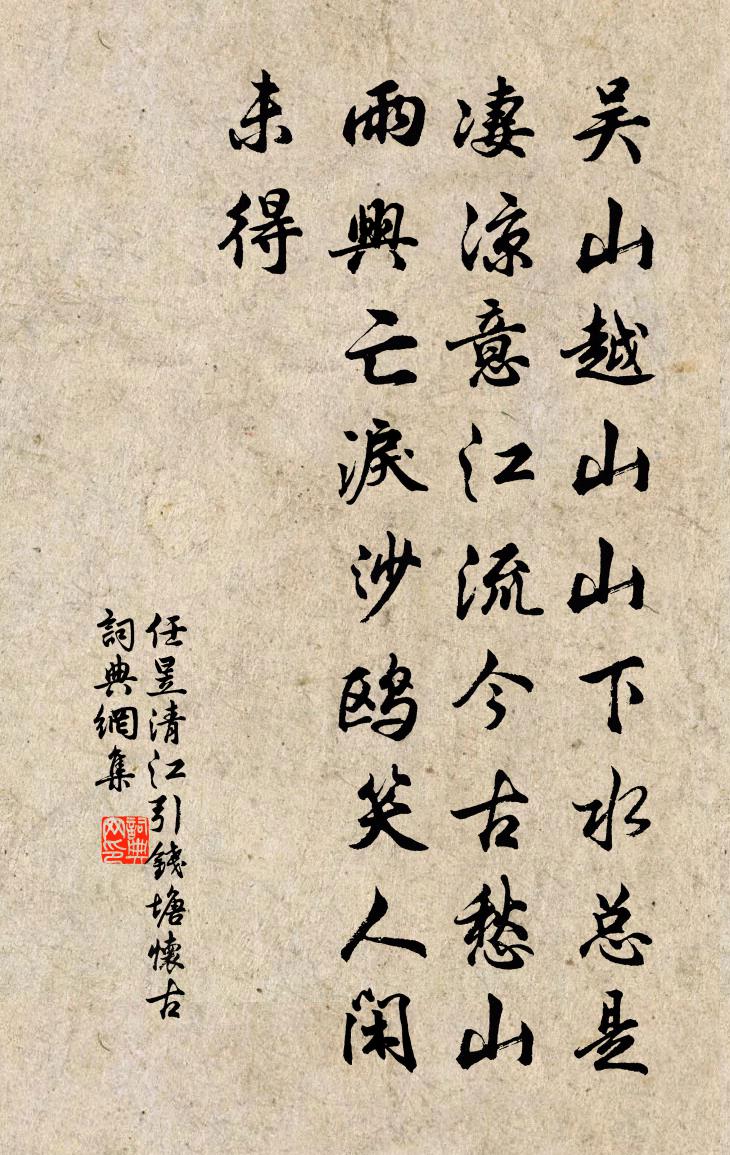 吴山越山山下水总是
凄凉意江流今古愁山
雨興亡淚沙鸥笑人闲
未得
任昱清江引錢塘懷古
詞典網集
詞典
网印